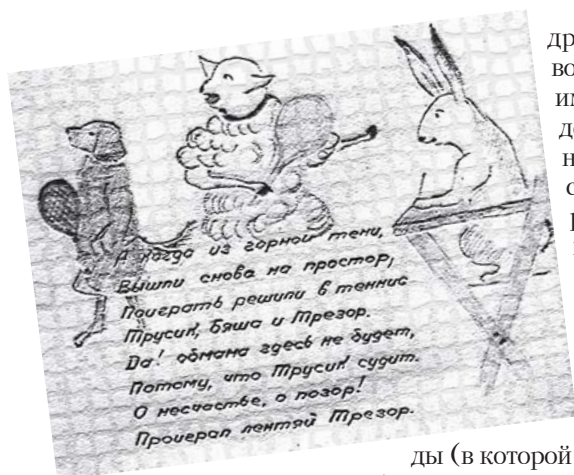 А когда из горной тени,
Вышли снова на простор,
Поиграть решили в теннис
Трусик, Бяша и Трезор.
Да! обмана здесь не будет,
Потому, что Трусик судит.
О несчастье, о позор!
Проиграл лентяй Трезор.
ды (в которой